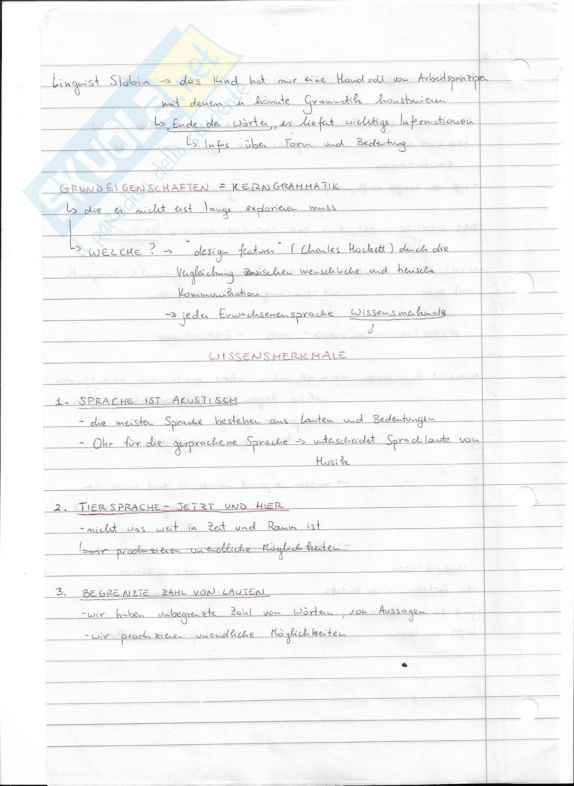 Linguist Slobin → das Kind hat nur eine Handvoll von Arbeitsprinzipien
mit denen, er könnte Grammatik konstruieren
↳ „Ende der Wörter„ es liefert wichtige Informationen
↳ Infos über Form und Bedeutung
GRUNDEIGENSCHAFTEN = KERNGRAMMATIK
↳ die er nicht erst lange explorieren muss
↳ WELCHE? → "design features" (Charles Hockett) durch die
Vergleichung zwischen menschliche und tierische
Kommunikation
→ jeder Erwachsenensprache Wissensmerkmale
↓
WISSENSMERKMALE
1. SPRACHE IST AKUSTISCH
- die meisten Sprache bestehen aus Lauten und Bedeutungen
- Ohr für die gesprochene Sprache → unterscheidet Sprachlaute von
Musik
2. TIERSPRACHE - JETZT UND HIER
- nicht was weit in Zeit und Raum ist
wir produzieren unendliche Möglichkeiten
3. BEGRENZTE ZAHL VON LAUTEN
- wir haben unbegrenzte Zahl von Wörtern, von Aussagen
- wir produzieren unendliche Möglichkeiten
SKUOLA.net